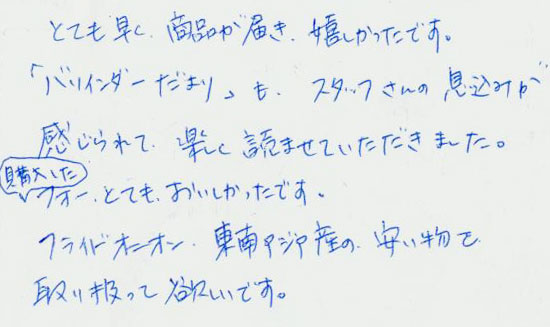 とても早く、商品が届き、嬉しかったです。
「バリインダーだより」も、スタッフさんの意込みが
感じられて、楽しく読ませていただきました。
購入した
フォー、とても、おいしかったです。
フライドオニオン、東南アジア産の、安い物を
取り扱って欲しいです。